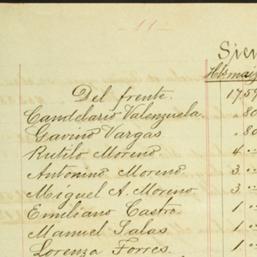 -11-
Sien
Del frente. 1759
Candelario Valenzuela. " 80
Gavino Vargas " 80
Rutilo Moreno 4 "
Antonino Moreno 3 "
Miguel A. Moreno 3 "
Emiliano Castro 1 "
Manuel Salas 1 "
Lorenza Torres 1